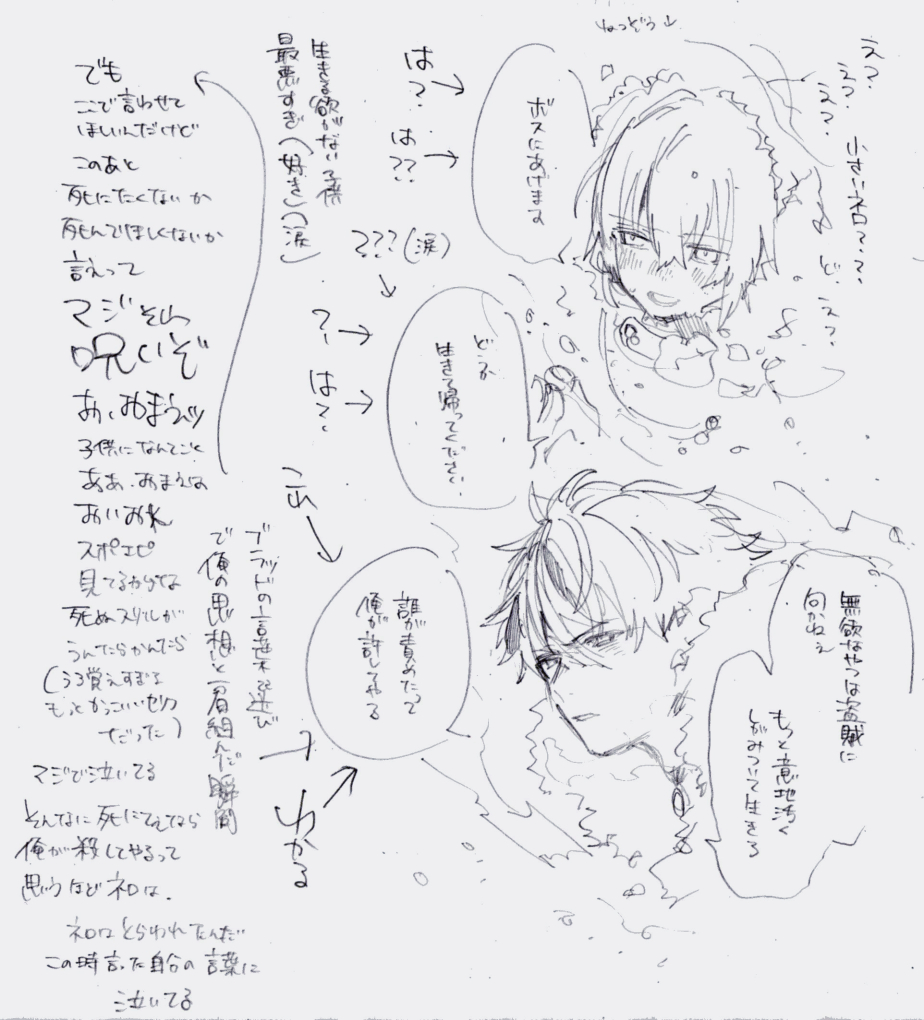 ねつぞう↓
え?
え?
え?
小さいネロ???
ど、え?
ボスにあげます
は?→
は??→
???(涙)
?→
は?→
どうか
生きて帰ってください
生きる欲がない子供
最悪すぎ(好き)(涙)
無欲なやつは盗賊に
向かねえ
もっと意地汚く
しがみついて生きろ
これ
誰が責めたって
俺が許してやる
ブラッドの言葉選び
で俺の思想と肩組んだ瞬間
→
わかる
でも
ここで言わせて
ほしいんだけど
このあと
死にたくないか
死んでほしくないか
言えって
マジそれ
呪いぞ
あ、おまえッ
子供になんてこと
ああ、おまえは
おいおれ
スポエピ
見てるからな
死ぬスリルが
うんたらかんたら
(うろ覚えすぎる
もっとかっこいいセリフ
だった)
マジで泣いてる
そんなに死にてえなら
俺が殺してやるって
思うほどネロは、
ネロはとらわれてんだ
この時言った自分の言葉に
泣いてる